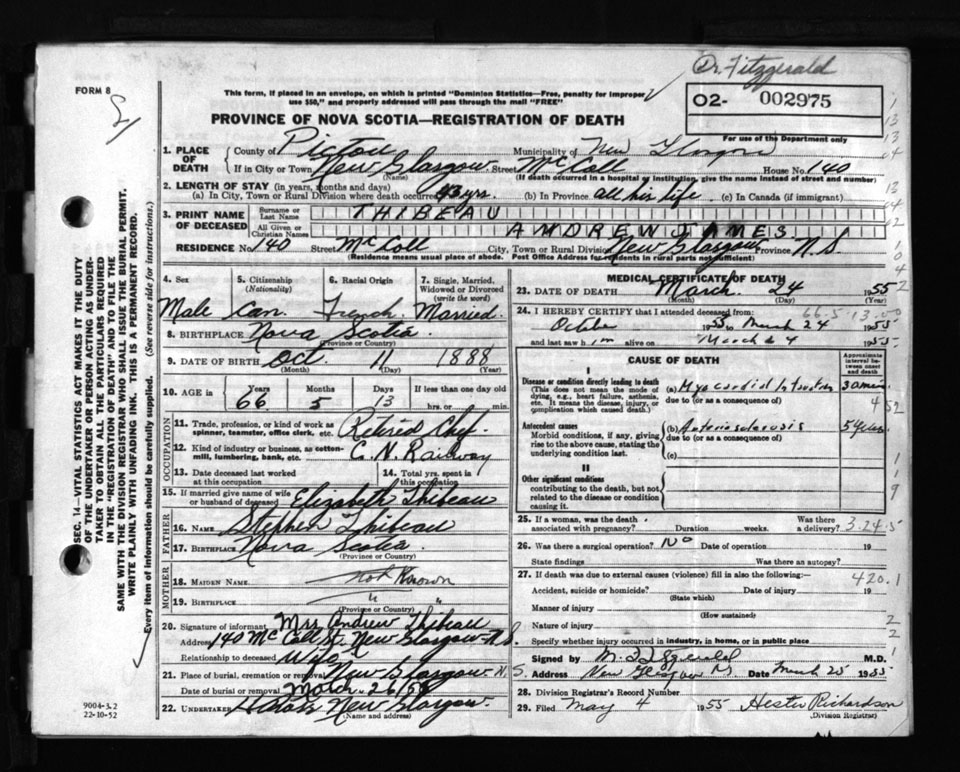 Dr. Fitzgerald
FORM 8
This form, if placed in an envelope, on which is printed "Dominion Statistics—Free, penalty for improper
use $50," and properly addressed will pass through the mail "FREE"
02- 002975
PROVINCE OF NOVA SCOTIA—REGISTRATION OF DEATH
For use of the Department only
1. PLACE OF DEATH County of Pictou Municipality of New Glasgow
If in City or Town New Glasgow Street McColl House No. 140
(Name) (If death occurred in a hospital or institution, give the name instead of street and number)
2. LENGTH OF STAY (in years, months and days)
(a) In City, Town or Rural Division where death occurred 43 yrs. (b) In Province all his life (c) In Canada (if immigrant)
3. PRINT NAME OF DECEASED Surname or Last Name THIBEAU
All Given or Christian Names ANDREW JAMES
RESIDENCE No. 140 Street McColl City, Town or Rural Division New Glasgow Province N.S.
(Residence means usual place of abode. Post Office Address for residents in rural parts not sufficient)
4. Sex 5. Citizenship (Nationality) 6. Racial Origin 7. Single, Married, Widowed or Divorced (write the word)
Male Can. French Married
8. BIRTHPLACE Nova Scotia
(Province or Country)
9. DATE OF BIRTH Oct. 11 1888
(Month) (Day) (Year)
10. AGE in Years Months Days If less than one day old
66 5 13 hrs. or min.
OCCUPATION
11. Trade, profession, or kind of work as spinner, teamster, office clerk, etc. Retired Chef
12. Kind of industry or business, as cotton-mill, lumbering, bank, etc. C.N. Railway
13. Date deceased last worked at this occupation 14. Total yrs. spent in this occupation
15. If married give name of wife or husband of deceased Elizabeth Thibeau
FATHER
16. NAME Stephen Thibeau
17. BIRTHPLACE Nova Scotia
(Province or Country)
MOTHER
18. MAIDEN NAME Not Known
19. BIRTHPLACE " "
(Province or Country)
20. Signature of informant Mrs Andrew Thibeau
Address 140 McColl St. New Glasgow N.S.
Relationship to deceased Wife
21. Place of burial, cremation or removal New Glasgow N.S.
Date of burial or removal March 26/55
22. UNDERTAKER New Glasgow
(Name and address)
9004-3.2
22-10-52
MEDICAL CERTIFICATE OF DEATH
23. DATE OF DEATH March 24 1955
(Month) (Day) (Year)
24. I HEREBY CERTIFY that I attended deceased from 66-5-13-00
October 1955 to March 24 1955
and last saw him alive on March 24 1955
CAUSE OF DEATH
Approximate interval between onset and death
I
Disease or condition directly leading to death
(This does not mean the mode of dying, e.g., heart failure, asthenia, etc. It means the disease, injury, or complication which caused death.)
(a) Myocardial Infarction 30 min
due to (or as a consequence of)
Antecedent causes
Morbid conditions, if any, giving rise to the above cause, stating the underlying condition last.
(b) Arteriosclerosis 5 years
due to (or as a consequence of)
(c)
II
Other significant conditions
contributing to the death, but not related to the disease or condition causing it.
25. If a woman, was the death associated with pregnancy? Duration weeks. Was there a delivery? 3-24-5
26. Was there a surgical operation? No Date of operation 19
State findings Was there an autopsy?
27. If death was due to external causes (violence) fill in also the following:—
420.1
Accident, suicide or homicide? Date of injury 19
(State which)
Manner of injury
(How sustained)
Nature of injury
Specify whether injury occurred in industry, in home, or in public place
Signed by M. Fitzgerald M.D.
Address New Glasgow N.S. Date March 25 1955
28. Division Registrar's Record Number
29. Filed May 4 1955 Hester Richardson
(Division Registrar)
SEC. 14—VITAL STATISTICS ACT MAKES IT THE DUTY
OF THE UNDERTAKER OR PERSON ACTING AS UNDERTAKER TO OBTAIN ALL THE PARTICULARS REQUIRED
IN THE "REGISTRATION OF DEATH" AND TO FILE THE
SAME WITH THE DIVISION REGISTRAR WHO SHALL ISSUE THE BURIAL PERMIT.
WRITE PLAINLY WITH UNFADING INK. THIS IS A PERMANENT RECORD.
Every item of information should be carefully supplied. (See reverse side for instructions.)